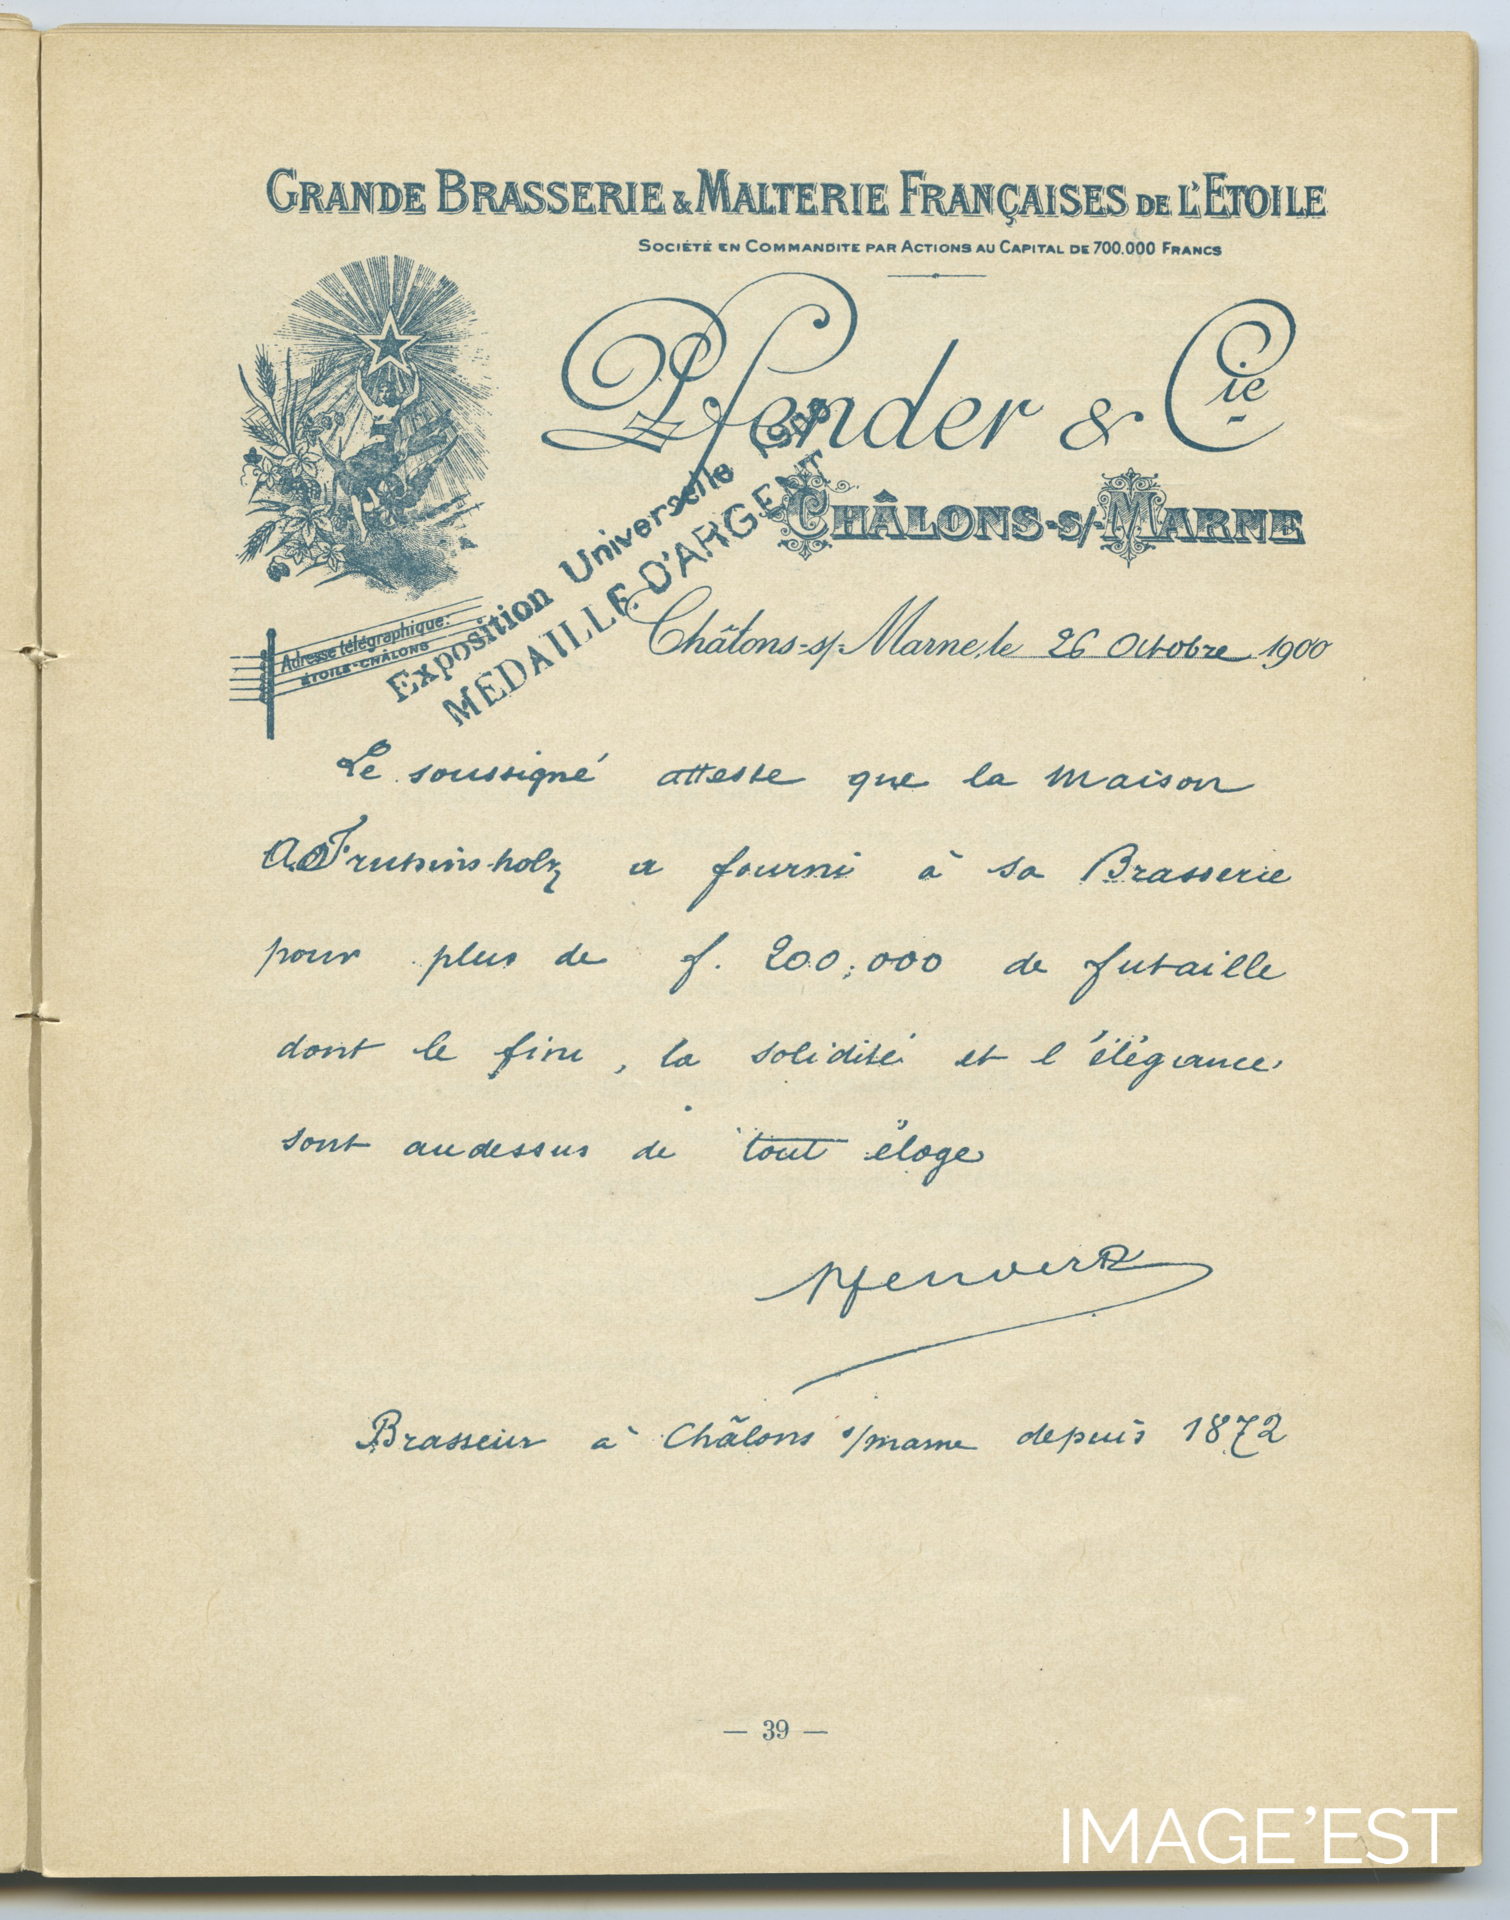 GRANDE BRASSERIE & MALTERIE FRANÇAISES DE L'ETOILE
SOCIÉTÉ EN COMMANDITE PAR ACTIONS AU CAPITAL DE 700.000 FRANCS
Pfender & Cie
CHÂLONS-S/-MARNE
Exposition Universelle 1900
MEDAILLE D'ARGENT
Adresse télégraphique:
ÉTOILE-CHÂLONS
Châlons-s/-Marne, le 26 Octobre 1900
Le soussigné atteste que la maison
A. Fruhinsholz a fourni à sa Brasserie
pour plus de f. 200,000 de futaille
dont le fini, la solidité et l'élégance
sont audessus de tout éloge
Pfender
Brasseur à Châlons s/marne depuis 1872
— 39 —
IMAGE'EST